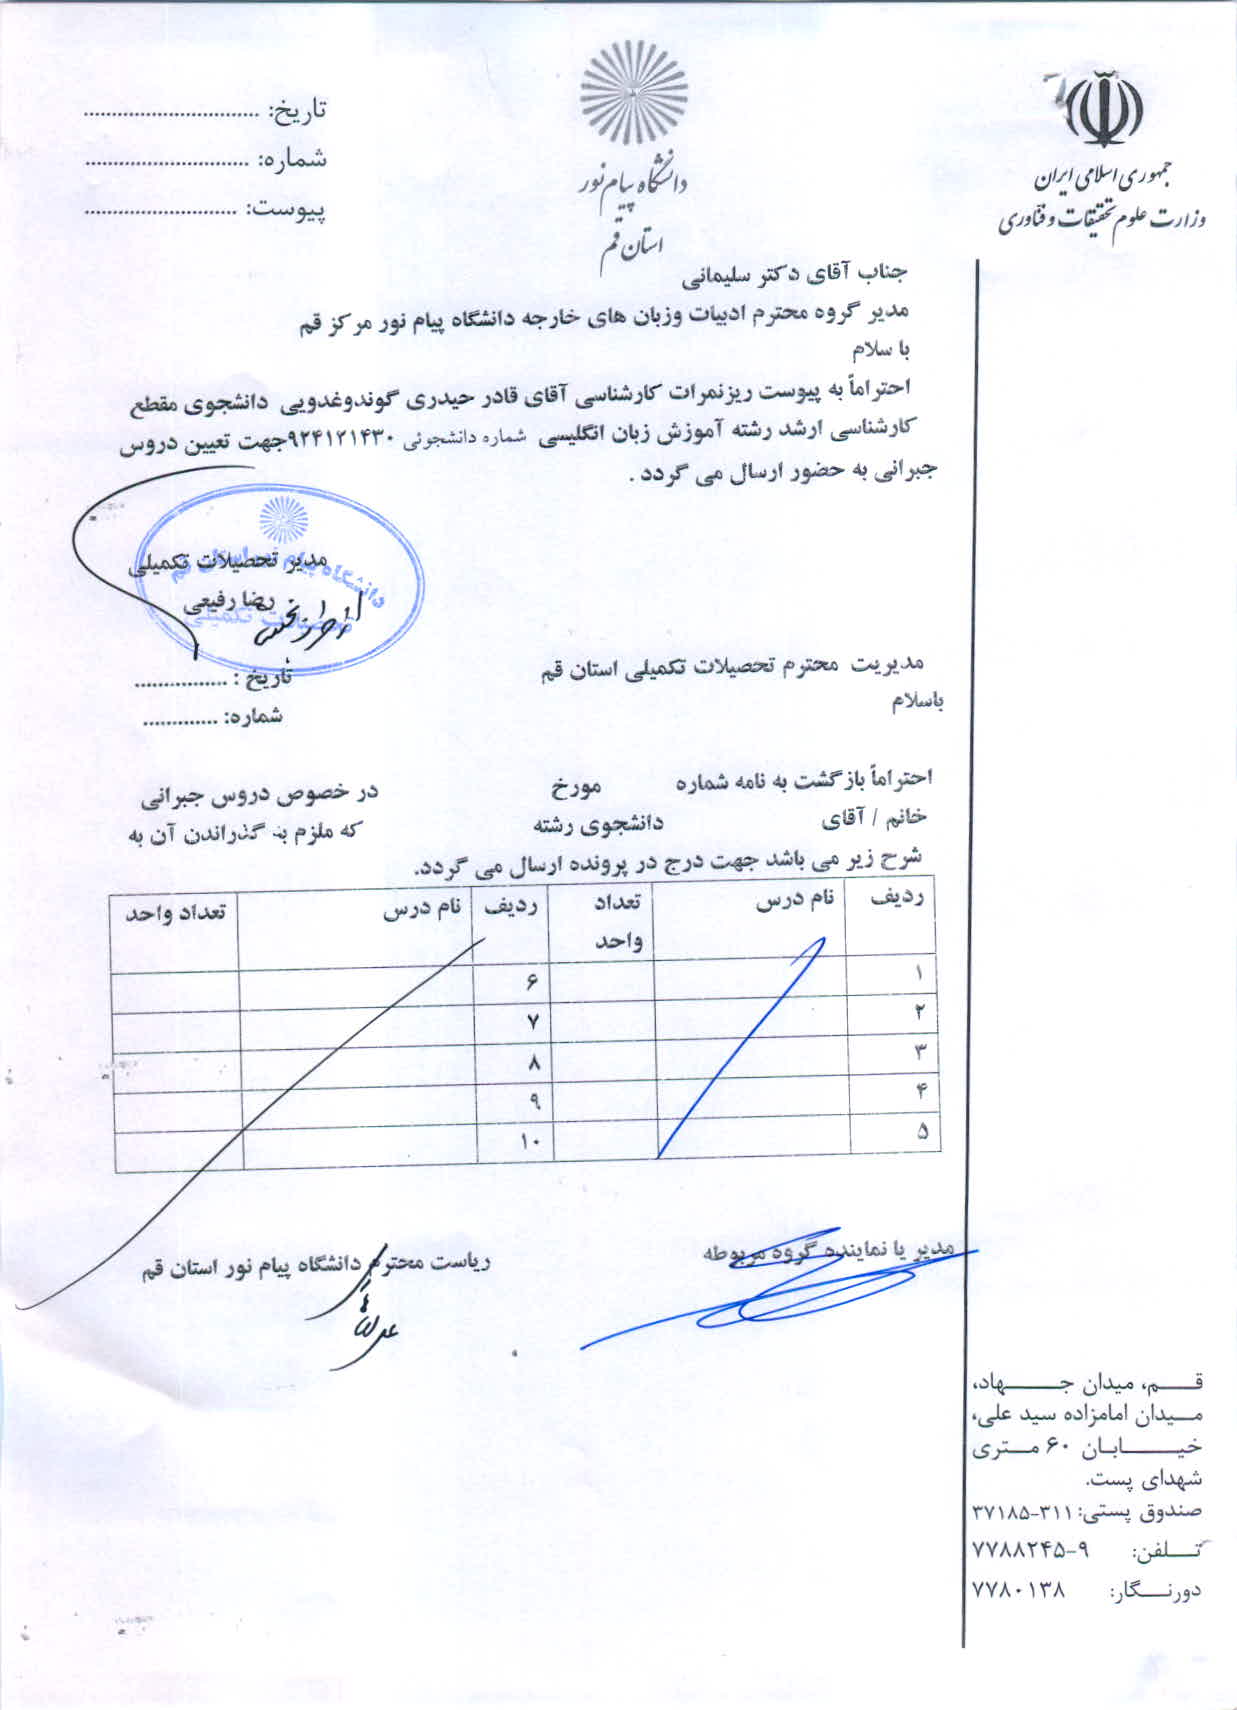 جمهوری اسلامی ایران
وزارت علوم تحقیقات و فناوری
دانشگاه پیام نور
استان قم
تاریخ: ................................
شماره: ..............................
پیوست: ............................
جناب آقای دکتر سلیمانی
مدیر گروه محترم ادبیات وزبان های خارجه دانشگاه پیام نور مرکز قم
با سلام
احتراماً به پیوست ریزنمرات کارشناسی آقای قادر حیدری گوندوغدویی دانشجوی مقطع
کارشناسی ارشد رشته آموزش زبان انگلیسی شماره دانشجوئی ۹۲۴۱۲۱۴۳۰جهت تعیین دروس
جبرانی به حضور ارسال می گردد .
دانشگاه پیام نور استان قم
تحصیلات تکمیلی
مدیر تحصیلات تکمیلی
رضا رفیعی
تاریخ : ................
شماره: .............
مدیریت محترم تحصیلات تکمیلی استان قم
باسلام
احتراماً بازگشت به نامه شماره مورخ در خصوص دروس جبرانی
خانم / آقای دانشجوی رشته که ملزم به گذراندن آن به
شرح زیر می باشد جهت درج در پرونده ارسال می گردد.
ردیف نام درس تعداد واحد ردیف نام درس تعداد واحد
۱ ۶
۲ ۷
۳ ۸
۴ ۹
۵ ۱۰
مدیر یا نماینده گروه مربوطه
ریاست محترم دانشگاه پیام نور استان قم
قم، میدان جهاد،
میدان امامزاده سید علی،
خیابان ۶۰ متری
شهدای پست.
صندوق پستی: ۳۱۱-۳۷۱۸۵
تلفن: ۹-۷۷۸۸۲۴۵
دورنگار: ۷۷۸۰۱۳۸